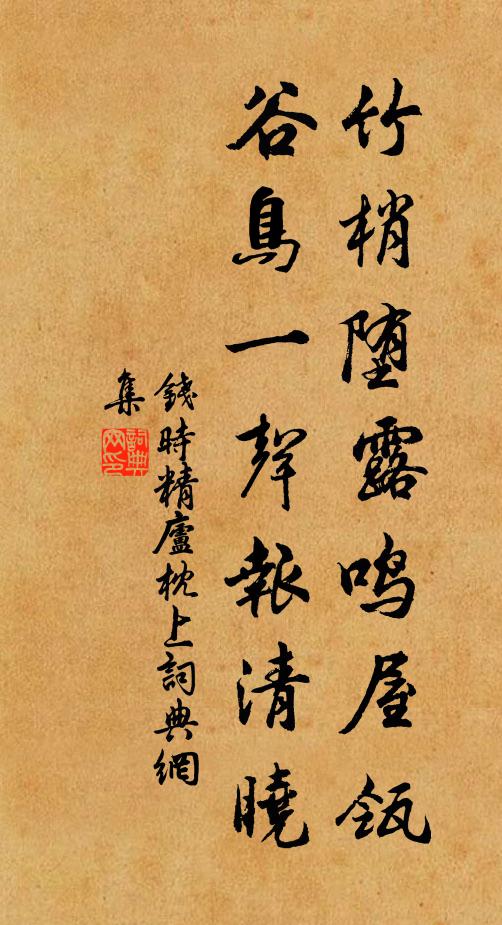 竹梢堕露鳴屋瓴
谷鳥一聲報清曉
錢時精廬枕上詞典網
集
詞典
网印